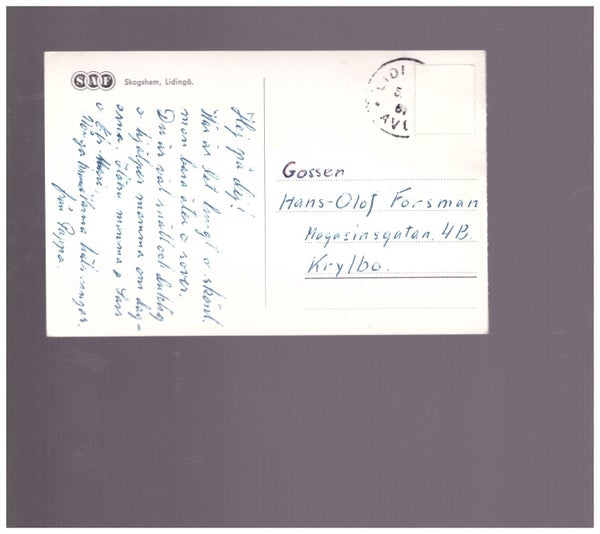 SAF Skogshem, Lidingö.
LIDI
Hej på dej!
Här är det lugnt o skönt,
man bara äter o sover.
Du är väl snäll och duktig
o hjälper mamma om dag-
arna.
mamma o Lars
o
hälsningar
från Pappa.
Gossen
Hans-Olof Forsman
Magasinsgatan. 4B.
Krylbo.